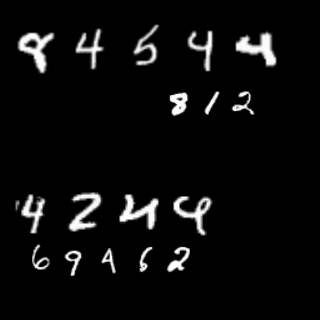 8 4 5 4 4
8 1 2
4 2 4 4
6 9 4 5 2